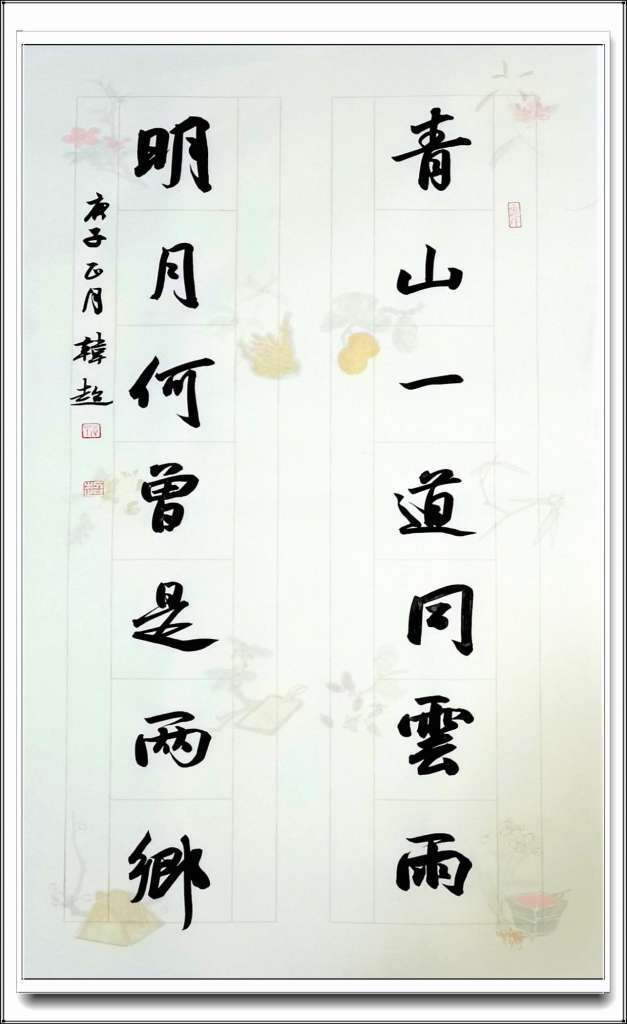 青山一道同雲雨
明月何曾是兩鄉
庚子正月韓超